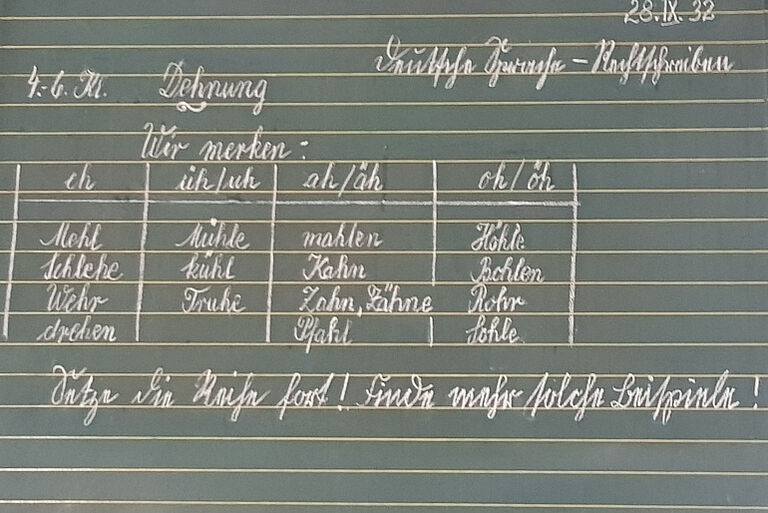 28.IX.32
Deutsche Sprache – Rechtschreiben
4.-6. Kl. Dehnung
Wir merken:
eh üh/uh ah/äh oh/öh
Mehl Mühle mahlen Höhle
Schlehe kühl Kahn Bohlen
Wehr Truhe Zahn, Zähne Rohr
drehen Pfahl Sohle
Setze die Reihe fort! Finde mehr solche Beispiele!